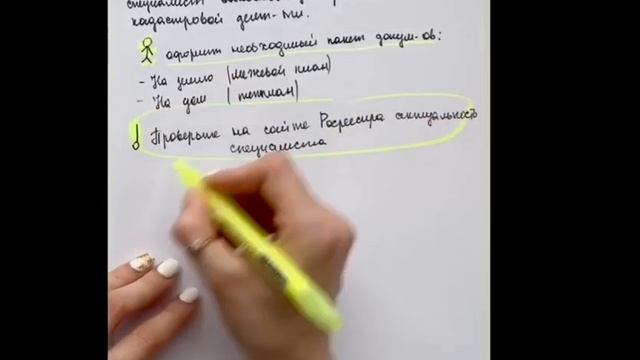 специалист
кадастровой деят-ти.
оформит необходимый пакет докум-ов:
- На землю (межевой план)
- На дом (техплан)
Проверьте на сайте Росреестра актуальность
специалиста